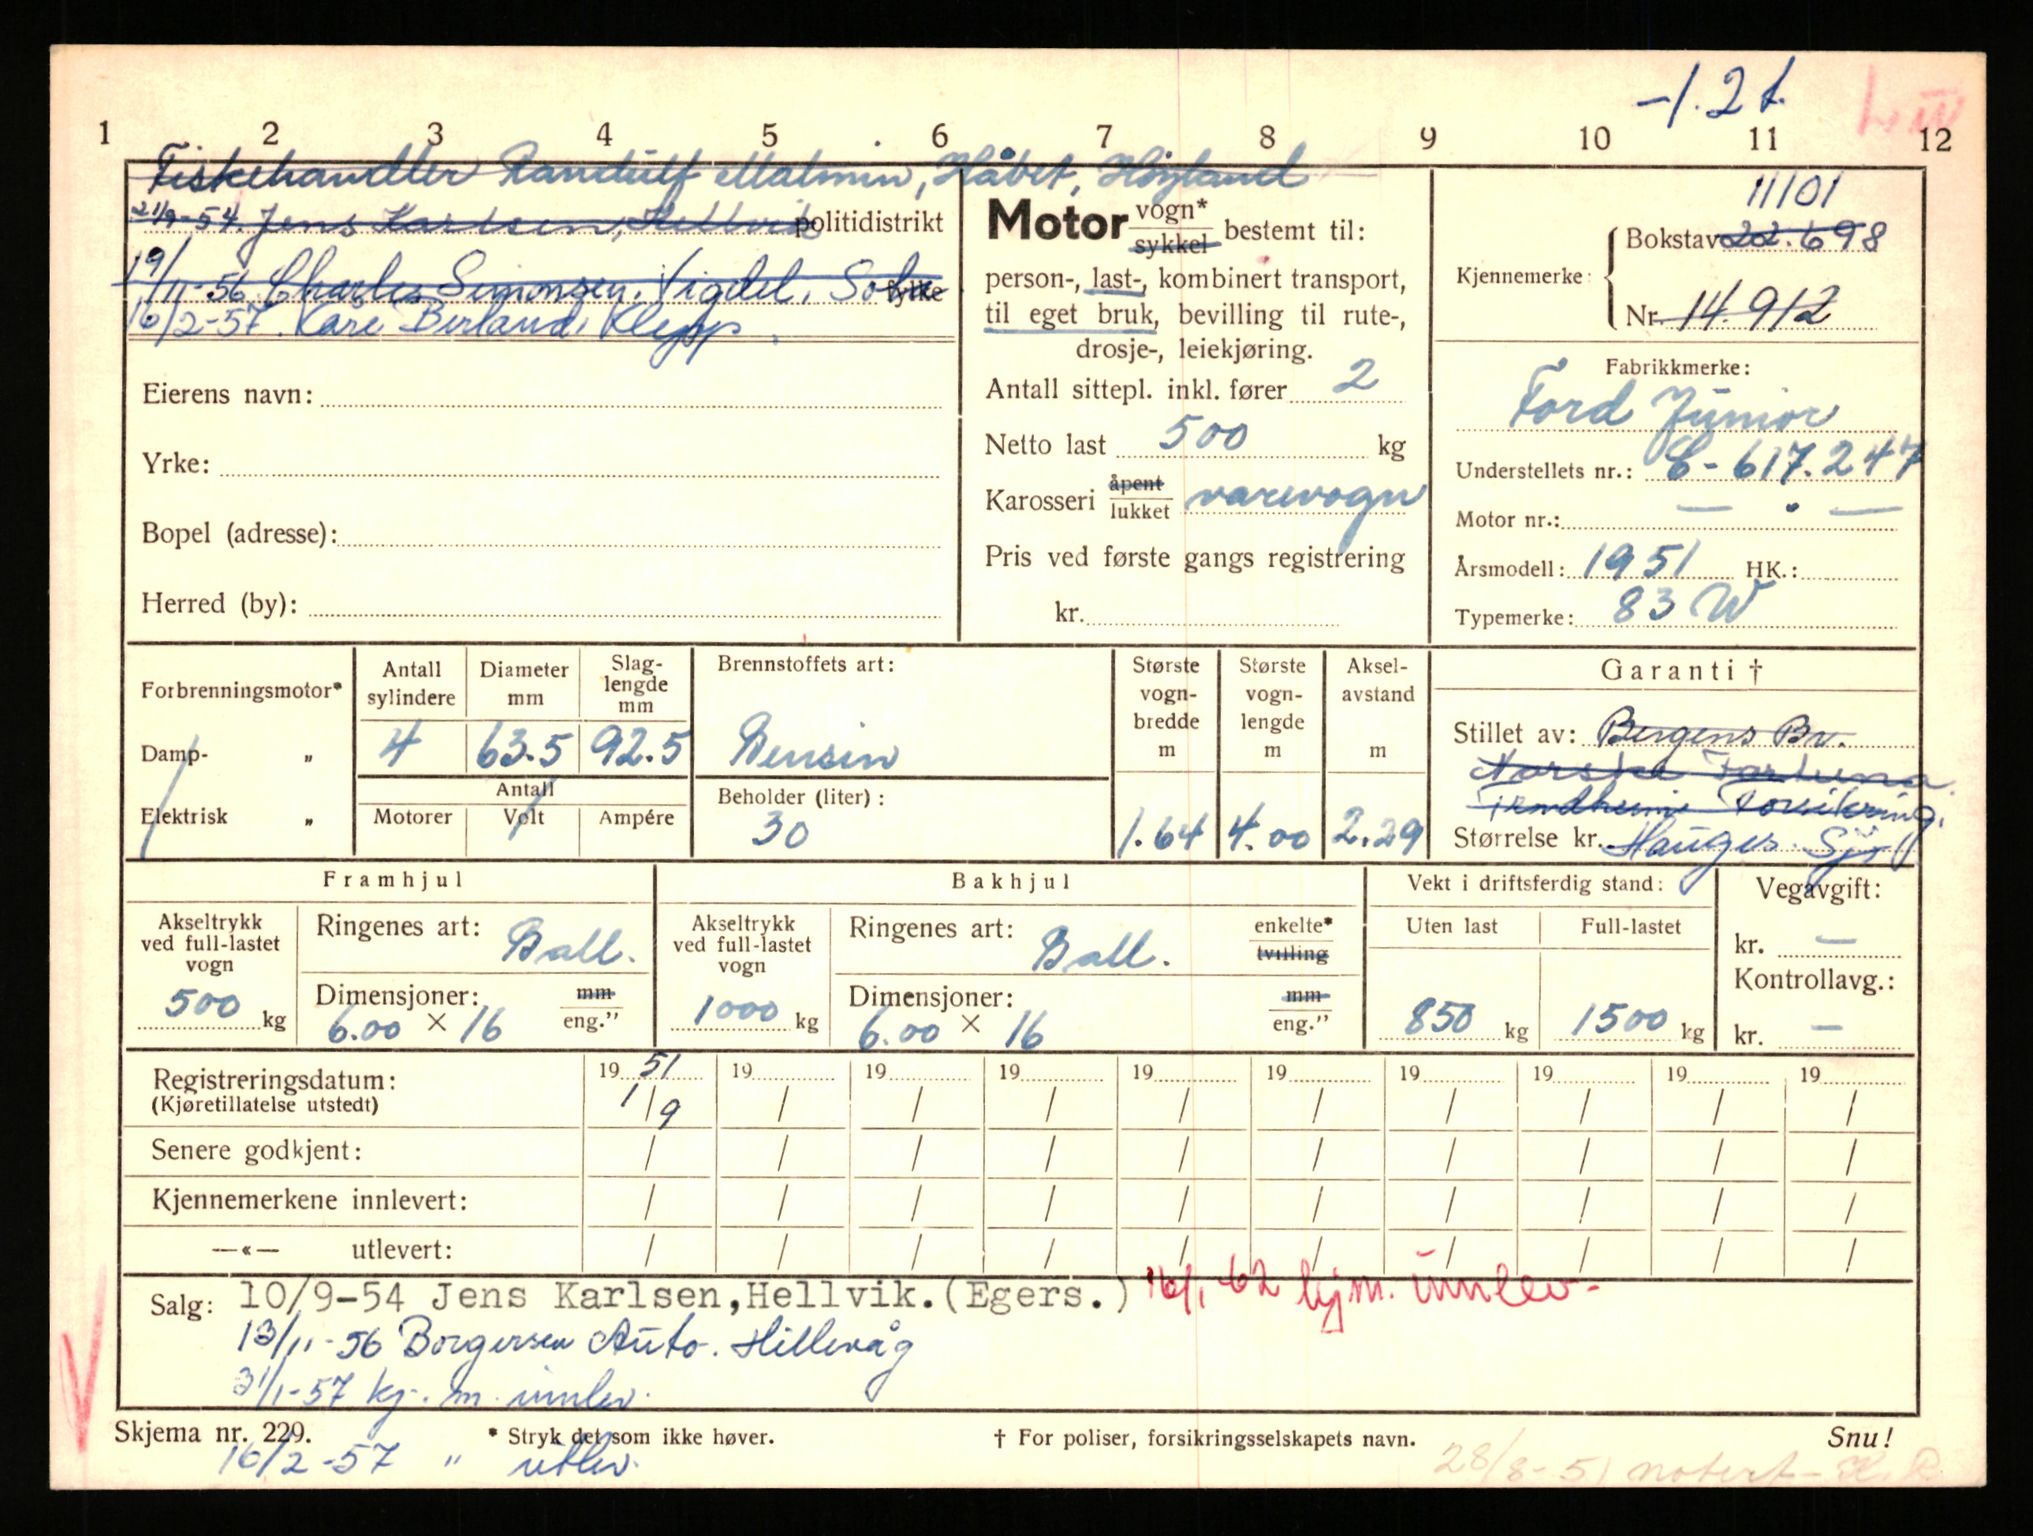 -1.2 t.
L III
1 2 3 4 5 6 7 8 9 10 11 12
Fiskehandler Randulf Malmin, Håbet, Høyland
21/9-54. Jens Karlsen, Hellvik politidistrikt
19/11-56 Charles Simonsen, Vigdel, Sola fylke
16/2-57. Kåre Berland, Klepp.
Eierens navn:
Yrke:
Bopel (adresse):
Herred (by):
Motor vogn*
sykkel bestemt til:
person-, last-, kombinert transport,
til eget bruk, bevilling til rute-,
drosje-, leiekjøring.
Antall sittepl. inkl. fører 2
Netto last 500 kg
Karosseri åpent
lukket varevogn
Pris ved første gangs registrering
kr.
11101
Kjennemerke: Bokstav 22.698
Nr. 14.912
Fabrikkmerke:
Ford Junior
Understellets nr.: C-617.247
Motor nr.: — " —
Årsmodell: 1951 HK.:
Typemerke: 83 W
Forbrenningsmotor*
Damp- „
Elektrisk „
Antall sylindere 4
Diameter mm 63.5
Slag-lengde mm 92.5
Antall
Motorer Volt Ampére
Brennstoffets art:
Bensin
Beholder (liter):
30
Største vogn-bredde m 1.64
Største vogn-lengde m 4.00
Aksel-avstand m 2.29
Garanti †
Stillet av: Bergens Br.
Norske Fortuna
Trondheim Forsikring.
Størrelse kr. Hauges. Sjø
Framhjul
Akseltrykk ved full-lastet vogn
500 kg
Ringenes art: Ball.
Dimensjoner: mm
6.00 × 16 eng."
Bakhjul
Akseltrykk ved full-lastet vogn
1000 kg
Ringenes art: Ball. enkelte*
tvilling
Dimensjoner: mm
6.00 × 16 eng."
Vekt i driftsferdig stand:
Uten last Full-lastet
850 kg 1500 kg
Vegavgift:
kr. —
Kontrollavg.:
kr. —
Registreringsdatum: 19 51 19 19 19 19 19 19 19 19 19
(Kjøretillatelse utstedt) 1/9 / / / / / / / / /
Senere godkjent: / / / / / / / / / /
Kjennemerkene innlevert: / / / / / / / / / /
—«— utlevert: / / / / / / / / / /
Salg: 10/9-54 Jens Karlsen, Hellvik. (Egers.) 16/1-62 kjm. innlev-
13/11-56 Borgersen Auto. Hillevåg
31/1-57 kj. m. innlev.
Skjema nr. 229. * Stryk det som ikke høver. † For poliser, forsikringsselskapets navn. Snu!
16/2-57 " utlev.
28/8-51 notert- K.R.